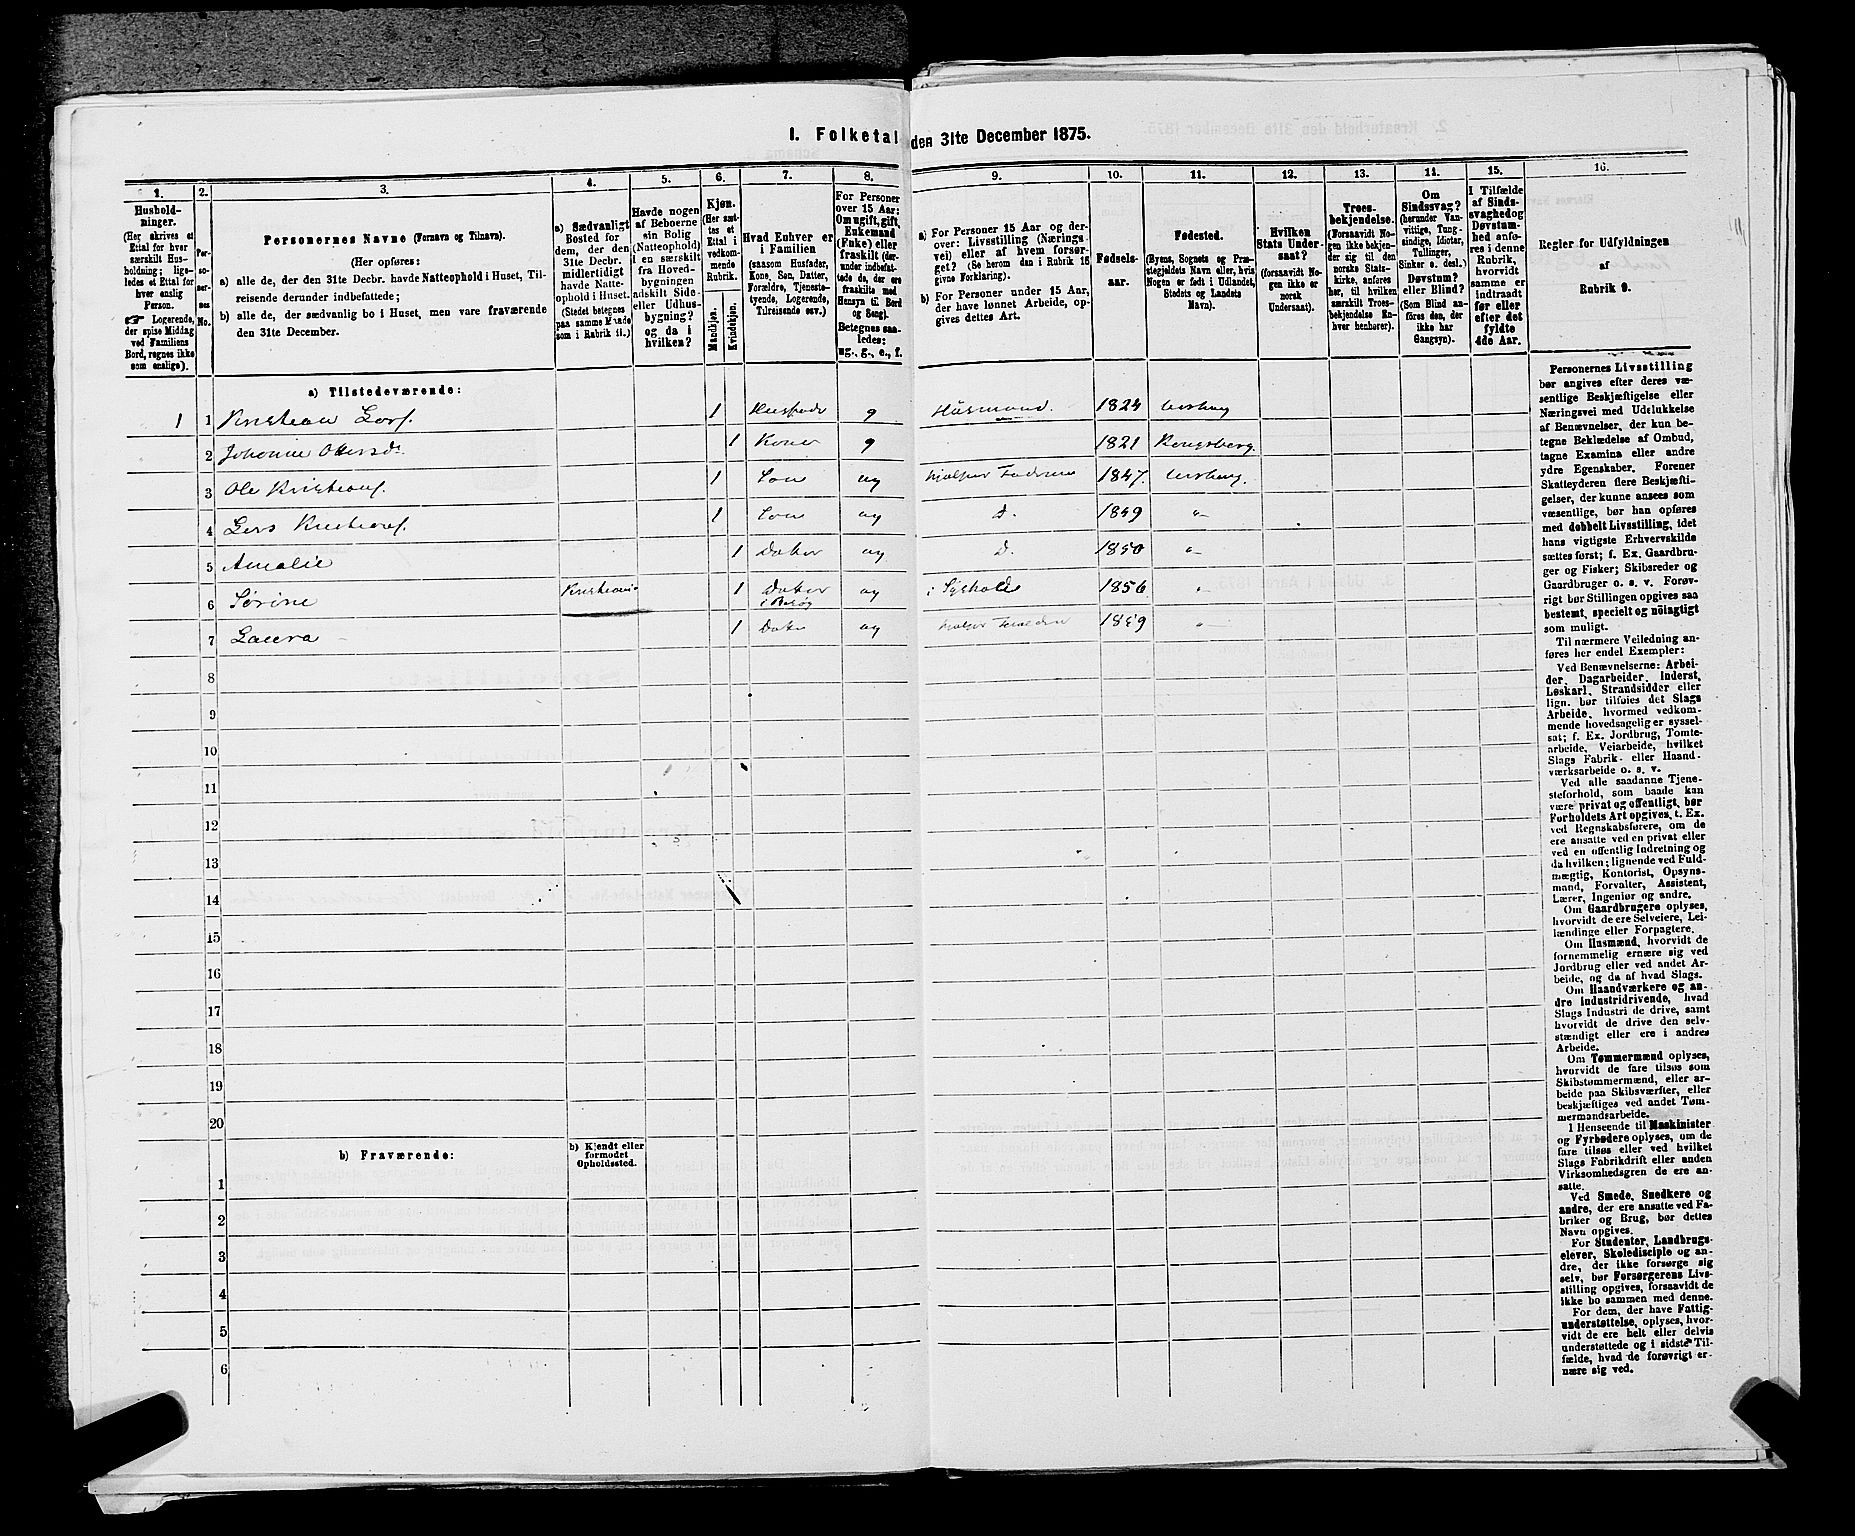 1. Folketal den 31te December 1875.
1.
Hushold-
ninger.
(Her skrives et
Ettal for hver
særskilt Hus-
holdning; lige-
ledes et Ettal for
hver enslig
Person.
☞ Logerende,
der spise Middag
ved Familiens
Bord, regnes ikke
som enslige).
2.
Per-
so-
ner-
nes
No.
3.
Personernes Navne (Fornavn og Tilnavn).
(Her opføres:
a) alle de, der den 31te Decbr. havde Natteophold i Huset, Til-
reisende derunder indbefattede;
b) alle de, der sædvanlig bo i Huset, men vare fraværende
den 31te December.
4.
a) Sædvanligt
Bosted for
dem, der den
31te Decbr.
midlertidigt
havde Natte-
ophold i Huset.
(Stedet betegnes
paa samme Maade
som i Rubrik 11.)
5.
Havde nogen
af Beboerne
sin Bolig
(Natteophold)
i en særskilt
fra Hoved-
bygningen
adskilt Side-
eller Udhus-
bygning?
og da i
hvilken?
6.
Kjøn.
(Her sæt-
tes et
Ettal i
vedkom-
mende
Rubrik.
Mandkjøn.
Kvindekjøn.
7.
Hvad Enhver er
i Familien
(saasom Husfader,
Kone, Søn, Datter,
Forældre, Tjeneste-
tyende, Logerende,
Tilreisende osv.)
8.
For Personer
over 15 Aar:
Om ugift, gift,
Enkemand
(Enke) eller
fraskilt (der-
under indbefat-
tede de, der ere
fraskilte med
Hensyn til Bord
og Seng).
Betegnes saa-
ledes:
ug., g., e., f.
9.
a) For Personer 15 Aar og der-
over: Livsstilling (Nærings-
vei) eller af hvem forsør-
get? (Se herom dan i Rubrik 16
givne Forklaring).
b) For Personer under 15 Aar,
der have lønnet Arbeide, op-
gives dettes Art.
10.
Fødsels-
aar.
11.
Fødested.
(Byens, Sognets og Præ-
stegjeldets Navn eller, hvis
Nogen er født i Udlandet,
Stedets og Landets
Navn).
12.
Hvilken
Stats Under-
saat?
(forsaavidt No-
gen ikke er
norsk
Undersaat).
13.
Troes-
bekjendelse.
(Forsaavidt No-
gen ikke bekjen-
der sig til den
norske Stats-
kirke, anføres
her, til hvilken
særskilt Troes-
bekjendelse En-
hver henhører).
14.
Om
Sindssvag?
(herunder Van-
vittige, Tung-
sindige, Idioter,
Tullinger,
Sinker o. desl.)
Døvstum?
eller Blind?
(Som Blind an-
føres den, der
ikke har
Gangsyn).
15.
I Tilfælde
af Sinds-
svaghed og
Døvstum-
hed anfø-
res i denne
Rubrik,
hvorvidt
samme er
indtraadt
før eller
efter det
fyldte
4de Aar.
16.
Regler for Udfyldningen
af
Rubrik 9.
a) Tilstedeværende:
1 1 Kristian Larsf. 1 Husfader g Husmand. 1824
2 Johanne Olersdr 1 Kone g 1821 Kongsberg.
3 Ole Kristians. 1 Søn ug hjelper Faderen 1847.
4 Lars Kristians. 1 Søn ug D. 1849 "
5 Amalie 1 Datter ug D. 1850 "
6 Sørine Kristiania 1 Datter i Besøg ug 1856 "
7 Laura 1 Datter ug 1859 "
8
9
10
11
12
13
14
15
16
17
18
19
20
b) Fraværende:
b) Kjendt eller
formodet
Opholdssted.
1
2
3
4
5
6
Personernes Livsstilling
bør angives efter deres væ-
sentlige Beskjæftigelse eller
Næringsvei med Udelukkelse
af Benævnelser, der kun be-
tegne Beklædelse af Ombud,
tagne Examina eller andre
ydre Egenskaber. Forener
Skatteyderen flere Beskjæfti-
gelser, der kunne ansees som
væsentlige, bør han opføres
med dobbelt Livsstilling, idet
hans vigtigste Erhvervskilde
sættes først; f. Ex. Gaardbru-
ger og Fisker; Skibsreder og
Gaardbruger o. s. v. Forøv-
rigt bør Stillingen opgives saa
bestemt, specielt og nøiagtigt
som muligt.
Til nærmere Veiledning an-
føres her endel Exempler:
Ved Benævnelserne: Arbei-
der, Dagarbeider, Inderst,
Løskarl, Strandsidder eller
lign. bør tilføies det Slags
Arbeide, hvormed vedkom-
mende hovedsagelig er syssel-
sat; f. Ex. Jordbrug, Tomte-
arbeide, Veiarbeide, hvilket
Slags Fabrik- eller Haand-
værksarbeide o. s. v.
Ved alle saadanne Tjene-
steforhold, som baade kan
være privat og offentligt, bør
Forholdets Art opgives, t. Ex.
ved Regnskabsførere, om de
ere ansatte ved en privat eller
ved en offentlig Indretning og
da hvilken; lignende ved Fuld-
mægtig, Kontorist, Opsyns-
mand, Forvalter, Assistent,
Lærer, Ingeniør og andre.
Om Gaardbrugere oplyses,
hvorvidt de ere Selveiere, Lei-
lændinge eller Forpagtere.
Om Husmænd, hvorvidt de
fornemmelig ernære sig ved
Jordbrug eller ved andet Ar-
beide, og da af hvad Slags.
Om Haandværkere og an-
dre Industridrivende, hvad
Slags Industri de drive, samt
hvorvidt de drive den selv-
stændigt eller ere i andres
Arbeide.
Om Tømmermænd oplyses,
hvorvidt de fare tilsøs som
Skibstømmermænd, eller ar-
beide paa Skibsværfter, eller
beskjæftiges ved andet Tøm-
mermandsarbeide.
I Henseende til Maskinister
og Fyrbødere oplyses, om de
fare tilsøs eller ved hvilket
Slags Fabrikdrift eller anden
Virksomhedsgren de ere an-
satte.
Ved Smede, Snedkere og
andre, der ere ansatte ved Fa-
briker og Brug, bør dettes
Navn opgives.
For Studenter, Landbrugs-
elever, Skoledisciple og an-
dre, der ikke forsørge sig
selv, bør Forsørgerens Livs-
stilling opgives, forsaavidt de
ikke bo sammen med denne.
For dem, der have Fattig-
understøttelse, oplyses, hvor-
vidt de ere helt eller delvis
understøttede og i sidste Til-
fælde, hvad de forøvrigt er-
nære sig ved.